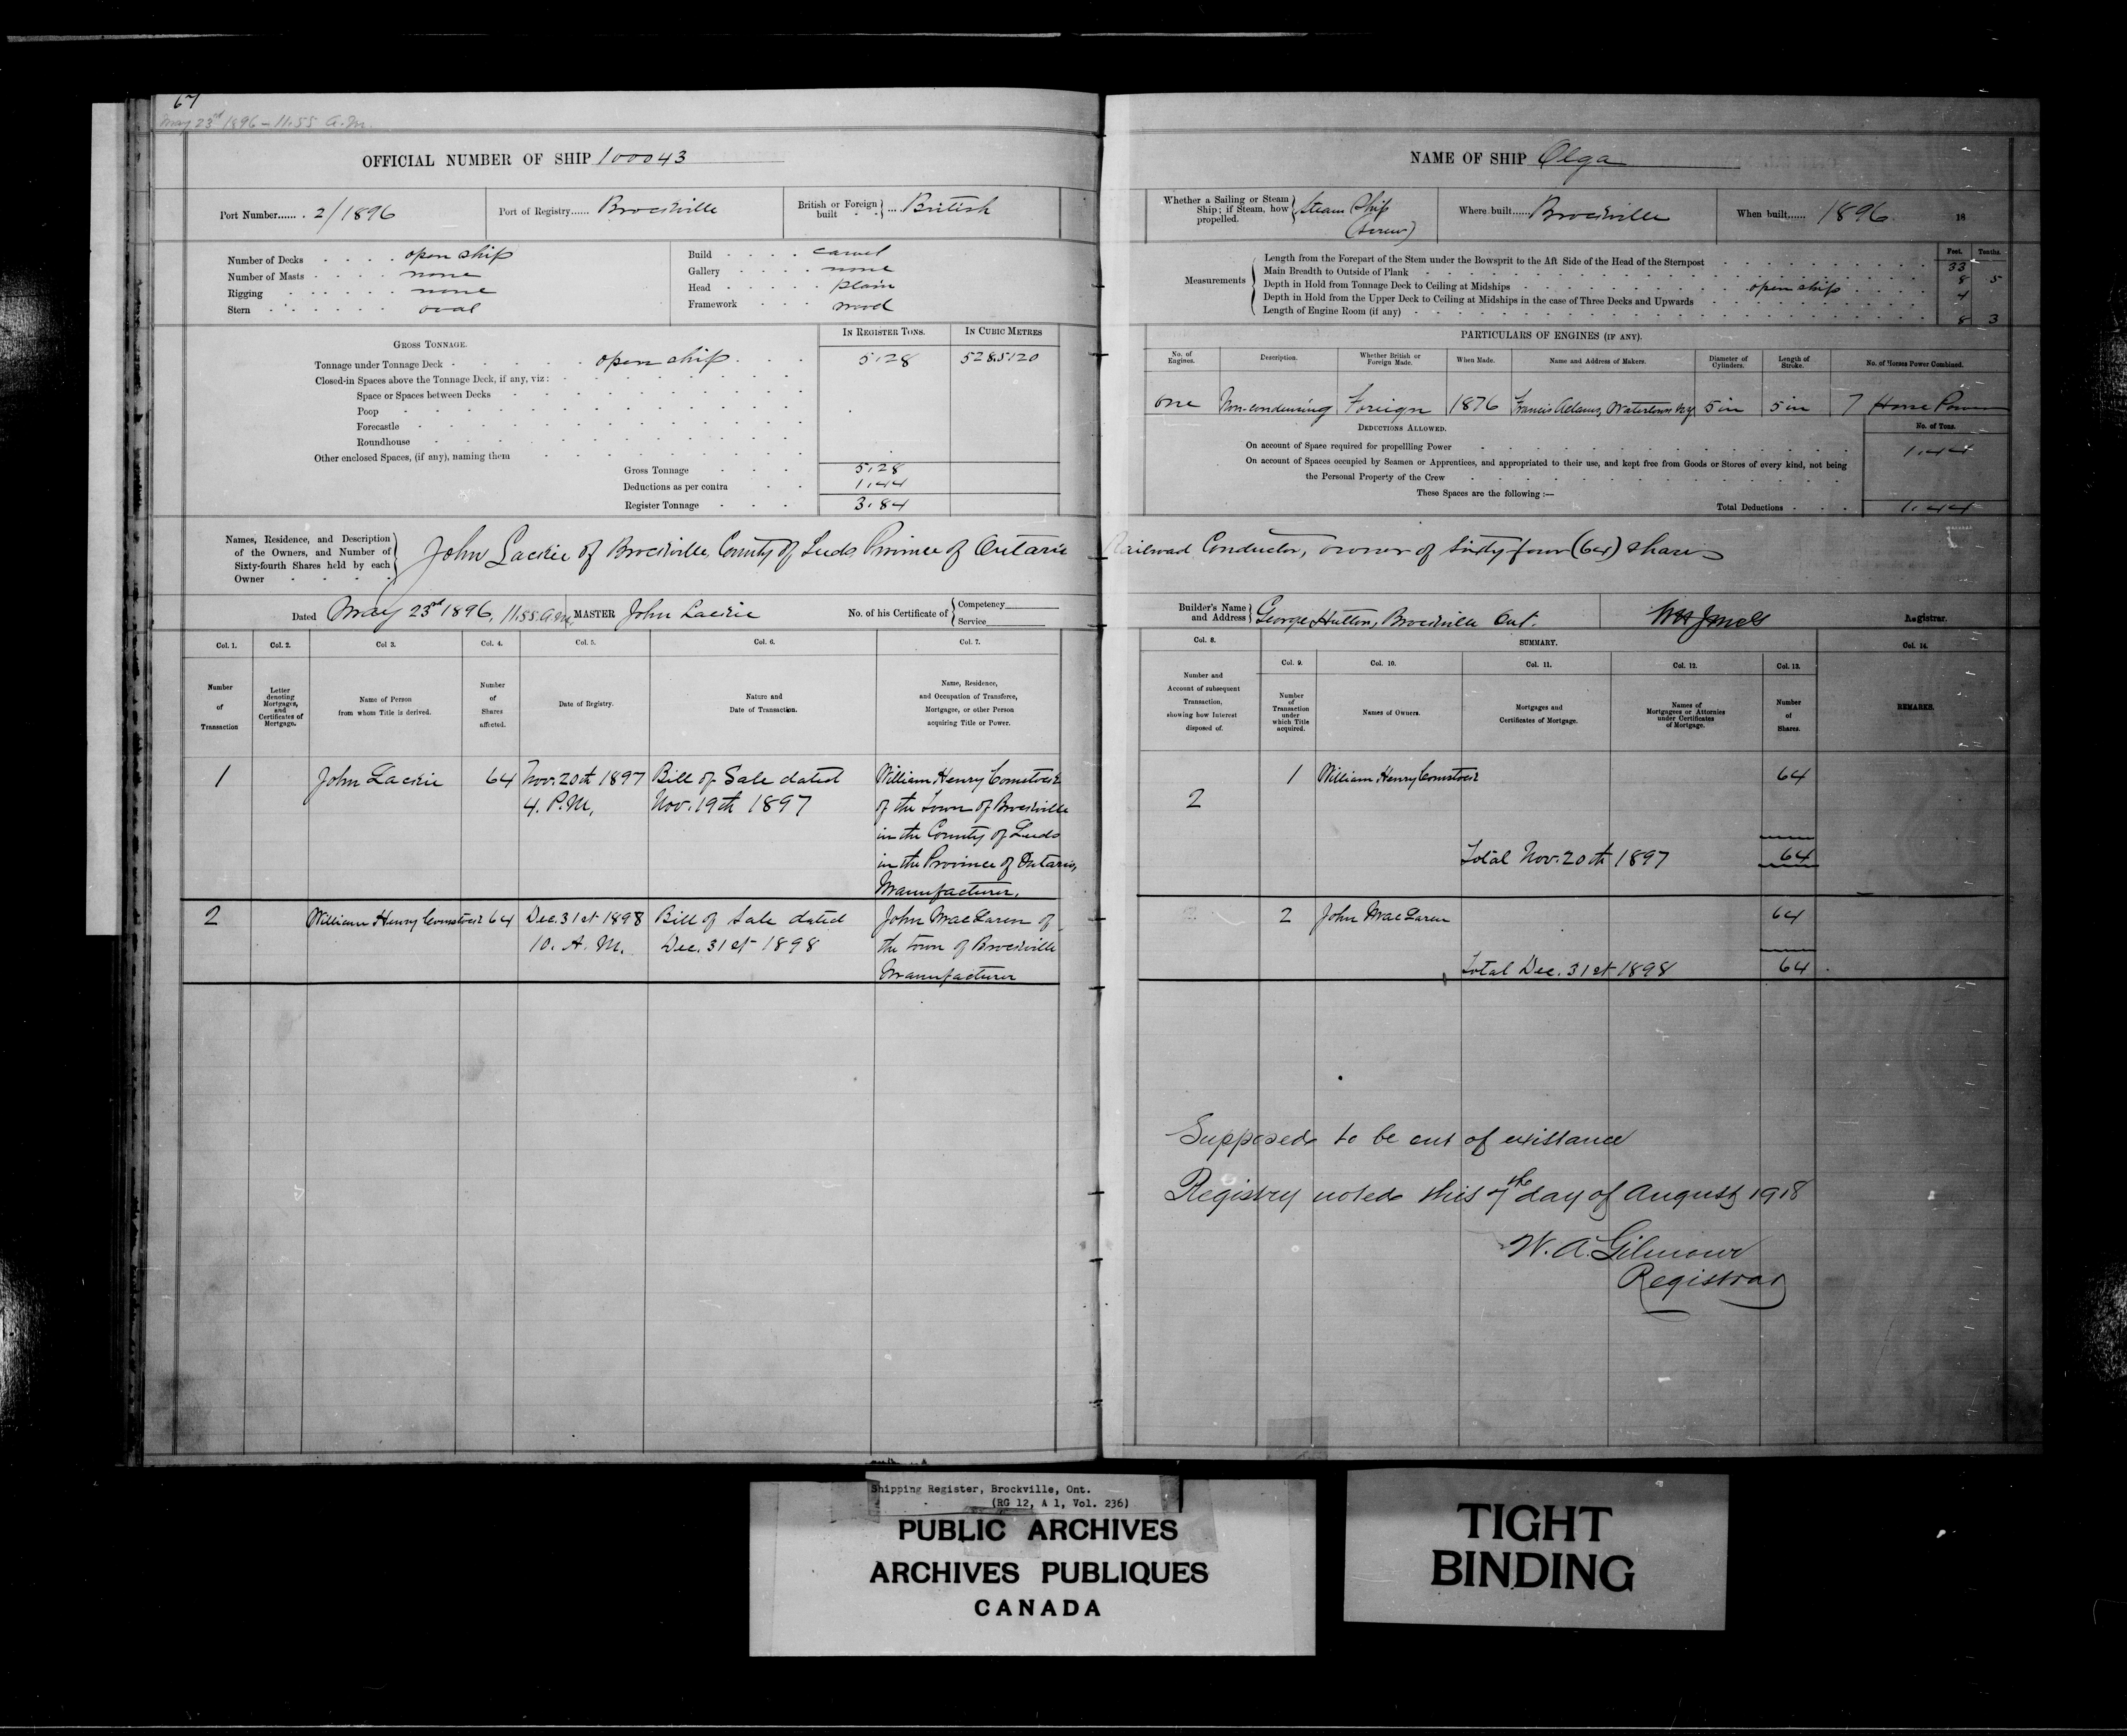 67
May 23rd 1896 – 11.55 A.M.
OFFICIAL NUMBER OF SHIP 100043
Port Number...... 2/1896
Port of Registry...... Brockville
British or Foreign built ... British
Number of Decks . . . . open ship
Number of Masts . . . . none
Rigging . . . . . none
Stern . . . . . . oval
Build . . . . carvel
Gallery . . . . none
Head . . . . . plain
Framework . . . wood
GROSS TONNAGE.
IN REGISTER TONS.
IN CUBIC METRES
Tonnage under Tonnage Deck - open ship 5.28 528.5120
Closed-in Spaces above the Tonnage Deck, if any, viz:
Space or Spaces between Decks
Poop
Forecastle
Roundhouse
Other enclosed Spaces, (if any), naming them
Gross Tonnage 5.28
Deductions as per contra 1.44
Register Tonnage 3.84
Names, Residence, and Description
of the Owners, and Number of
Sixty-fourth Shares held by each
Owner
John Lackie of Brockville, County of Leeds Province of Ontario
Dated May 23rd 1896, 11.55 A.M. MASTER John Lackie
No. of his Certificate of { Competency
Service
Col. 1. Col. 2. Col 3. Col. 4. Col. 5. Col. 6. Col. 7.
Number
of
Transaction
Letter
denoting
Mortgages,
and
Certificates of
Mortgage.
Name of Person
from whom Title is derived.
Number
of
Shares
affected.
Date of Registry.
Nature and
Date of Transaction.
Name, Residence,
and Occupation of Transferee,
Mortgagee, or other Person
acquiring Title or Power.
1 John Lackie 64 Nov. 20th 1897 Bill of Sale dated William Henry Comstock
4. P.M. Nov. 19th 1897 of the Town of Brockville
in the County of Leeds
in the Province of Ontario,
Manufacturer.
2 William Henry Comstock 64 Dec. 31st 1898 Bill of Sale dated John MacLaren of
10. A.M. Dec. 31st 1898 the town of Brockville
Manufacturer
NAME OF SHIP Olga
Whether a Sailing or Steam
Ship; if Steam, how
propelled.
Steam Ship
(Screw)
Where built..... Brockville
When built...... 1896 18
Feet. Tenths.
Measurements
Length from the Forepart of the Stem under the Bowsprit to the Aft Side of the Head of the Sternpost 33
Main Breadth to Outside of Plank 8 5
Depth in Hold from Tonnage Deck to Ceiling at Midships open ship 4
Depth in Hold from the Upper Deck to Ceiling at Midships in the case of Three Decks and Upwards
Length of Engine Room (if any) 8 3
PARTICULARS OF ENGINES (IF ANY).
No. of
Engines.
Description.
Whether British or
Foreign Made.
When Made.
Name and Address of Makers.
Diameter of
Cylinders.
Length of
Stroke.
No. of Horses Power Combined.
one Non-condensing Foreign 1876 Francis Adams, Watertown N.Y. 5 in 5 in 7 Horse Power
DEDUCTIONS ALLOWED.
No. of Tons.
On account of Space required for propellling Power 1.44
On account of Spaces occupied by Seamen or Apprentices, and appropriated to their use, and kept free from Goods or Stores of every kind, not being
the Personal Property of the Crew
These Spaces are the following :—
Total Deductions . . . 1.44
Railroad Conductor, owner of Sixty four (64) shares
Builder's Name
and Address
George Hutton, Brockville Ont.
Registrar.
Col. 8.
SUMMARY.
Col. 14.
Col. 9. Col. 10. Col. 11. Col. 12. Col. 13.
Number and
Account of subsequent
Transaction,
showing how Interest
disposed of.
Number
of
Transaction
under
which Title
acquired.
Names of Owners.
Mortgages and
Certificates of Mortgage.
Names of
Mortgagees or Attornies
under Certificates
of Mortgage.
Number
of
Shares.
REMARKS.
1 William Henry Comstock 64
2
Total Nov. 20th 1897 64
2 John MacLaren 64
Total Dec. 31st 1898 64
Supposed to be out of existance
Registry noted this 7th day of August 1918
W. A. Gilmour
Registrar
Shipping Register, Brockville, Ont.
(RG 12, A 1, Vol. 236)
PUBLIC ARCHIVES
ARCHIVES PUBLIQUES
CANADA
TIGHT
BINDING